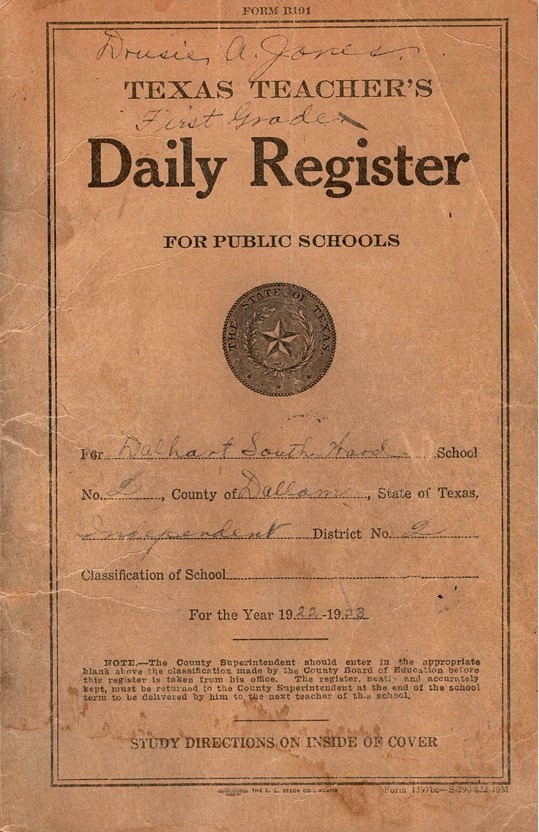 FORM B191
Drusie A. Jones.
TEXAS TEACHER'S
First Grade
Daily Register
FOR PUBLIC SCHOOLS
THE STATE OF TEXAS
For Dalhart South Ward School
No. 2, County of Dallam, State of Texas,
Independent District No. 2
Classification of School
For the Year 1922-1923
NOTE.—The County Superintendent should enter in the appropriate
blank above the classification made by the County Board of Education before
this register is taken from his office. The register, neatly and accurately
kept, must be returned to the County Superintendent at the end of the school
term to be delivered by him to the next teacher of this school.
STUDY DIRECTIONS ON INSIDE OF COVER
THE E. L. STECK CO., AUSTIN